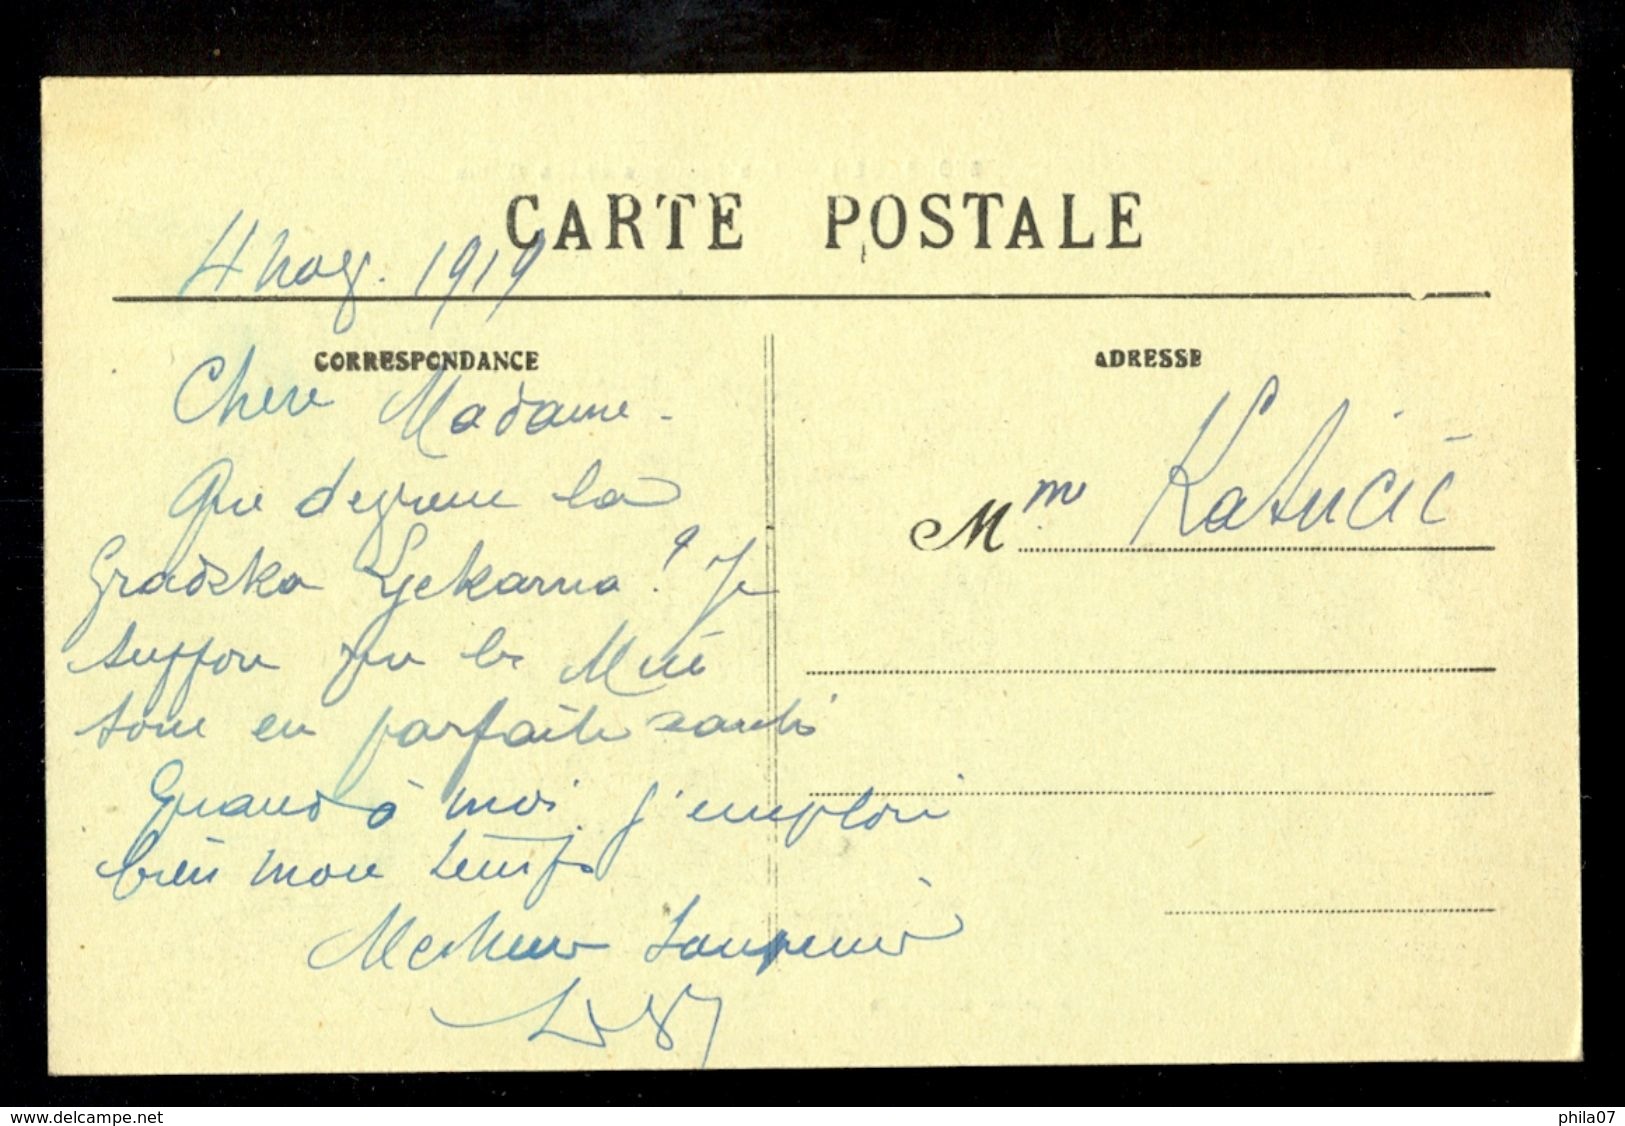 CARTE POSTALE
4 nov. 1919
CORRESPONDANCE
ADRESSE
Chere Madame -
Que devienne la
Gradska Ljekarna? Je
que les
sone en parfaite santé
Quand à moi j'emploi
bien mon temps
Meilleur souvenir
Mme Katičić
www.delcampe.net
phila07